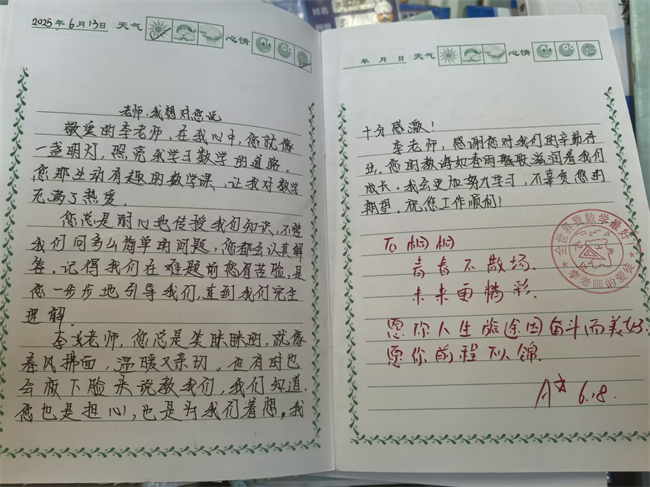 2025年6月13日 天气 心情
老师,我想对您说
敬爱的李老师,在我心中,您就像
一盏明灯,照亮我学习数学的道路。
您那生动有趣的数学课,让我对数学
充满了热爱。
您总是耐心地传授我们知识,不管
我们问多么简单的问题,您都会认真解
答。记得我们在难题前愁眉苦脸,是
您一步步地引导我们,直到我们完全
理解。
李老师,您总是笑眯眯的,就像
春风拂面,温暖又亲切。但有时也
会板下脸来说教我们,我们知道,
您也是担心,也是为我们着想。我
年 月 日 天气 心情
十分感激!
李老师,感谢您对我们的辛勤付
出。您的教诲如春雨般滋润着我们
成长。我会更加努力学习,不辜负您的
期望。祝您工作顺利!
To
青春不散场.
未来更精彩.
愿你人生旅途因奋斗而美好.
愿你前程似锦.
6.18.
全世界我数学最好